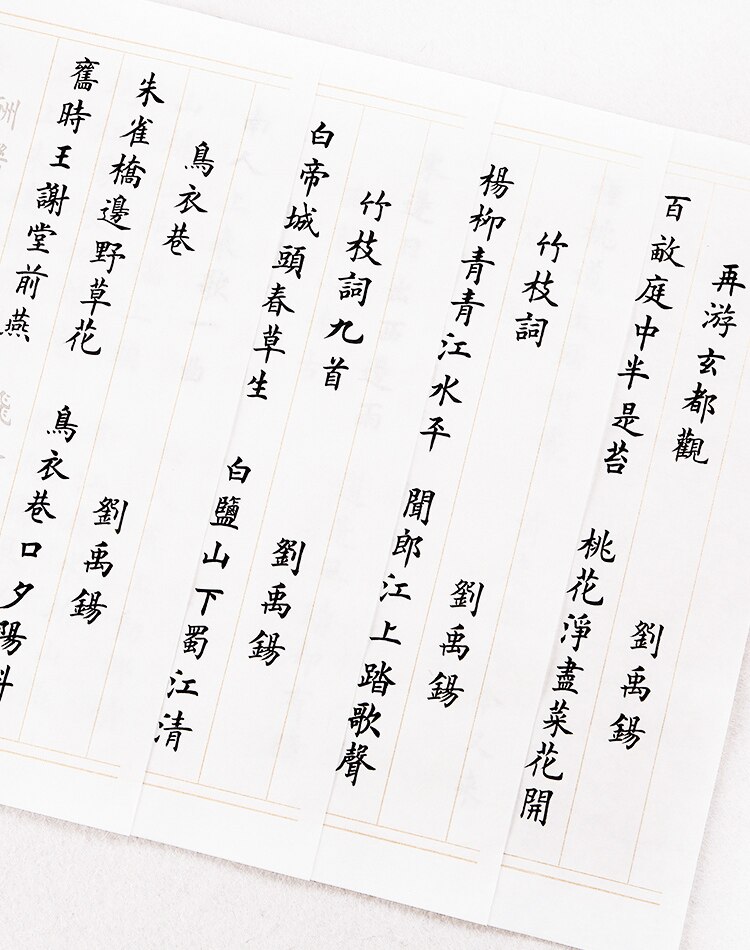 再游玄都觀 劉禹錫
百畝庭中半是苔 桃花淨盡菜花開
竹枝詞 劉禹錫
楊柳青青江水平 聞郎江上踏歌聲
竹枝詞九首 劉禹錫
白帝城頭春草生 白鹽山下蜀江清
鳥衣巷 劉禹錫
朱雀橋邊野草花 鳥衣巷口夕陽斜
舊時王謝堂前燕